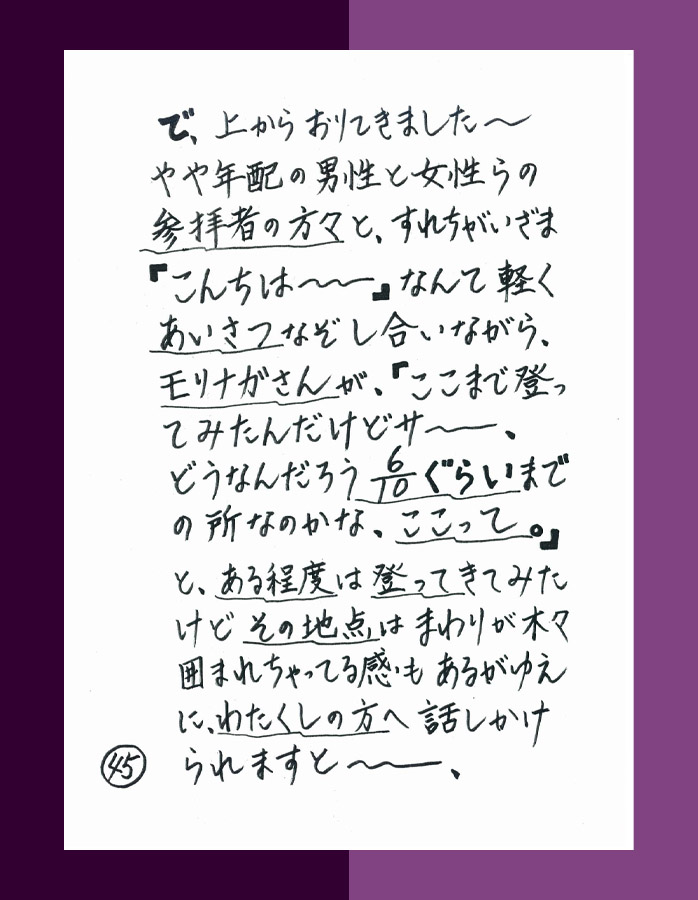 で、上からおりてきました〜
やや年配の男性と女性らの
参拝者の方々と、すれちがいざま
『こんちは〜〜〜』なんて軽く
あいさつなぞし合いながら、
モリナガさんが、『ここまで登っ
てみたんだけどサ〜〜、
どうなんだろう6/10ぐらいまで
の所なのかな、ここって。』
と、ある程度は登ってきてみた
けどその地点はまわりが木々
囲まれちゃってる感もあるがゆえ
に、わたくしの方へ話しかけ
られますと〜〜、
45